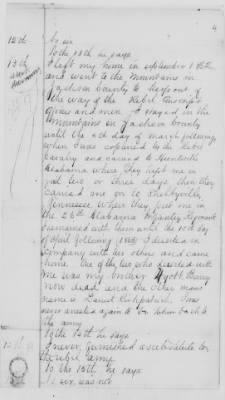 4
12th No sir
To the 13th he says
13th I left my home in september 1862
and went to the Mountains in
Jackson County to keep out of
the way of the Rebel
and men. I stayed in the
Mountains in Jackson County
until the day of march following
when I was captured by the Rebel
Cavalry and carried to Huntsville
Alabama where they kept me in
jail two or three days then they
carried me on to Shelbyville
Tennessee where they put me in
the 26th Alabama Infantry Regiment
I remained with them until the 10th day
of April following (1863) I deserted in
company with two others and came
home. One of the two who deserted with
me was my brother
now dead, and the other mans
name is Daniel Kirkpatrick. I was
never arrested again to be taken back to
the army
To the 15th he says
I never furnished a substitute for
the rebel army
To the 15th he says
No sir, was not